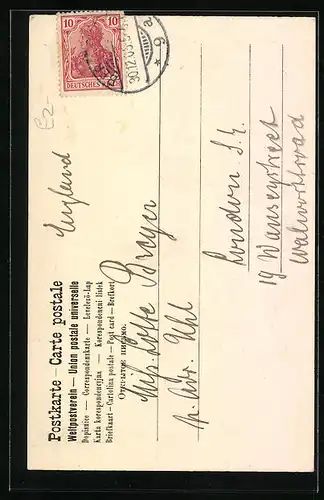 Postkarte – Carte postale
Weltpostverein – Union postale universelle
Dopisnice — Correspondenzkarte — Levelező-Lap
Karta korespondencyjna — Korespondenční lístek
Briefkaart — Cartolina postale — Post card — Brefkort
Открытое письмо.
10 10
DEUTSCHES
30.12.05
* 9 a
England
Miss
p. Adr. Uhl
London S.E.
19 Wansey street
Walworth road